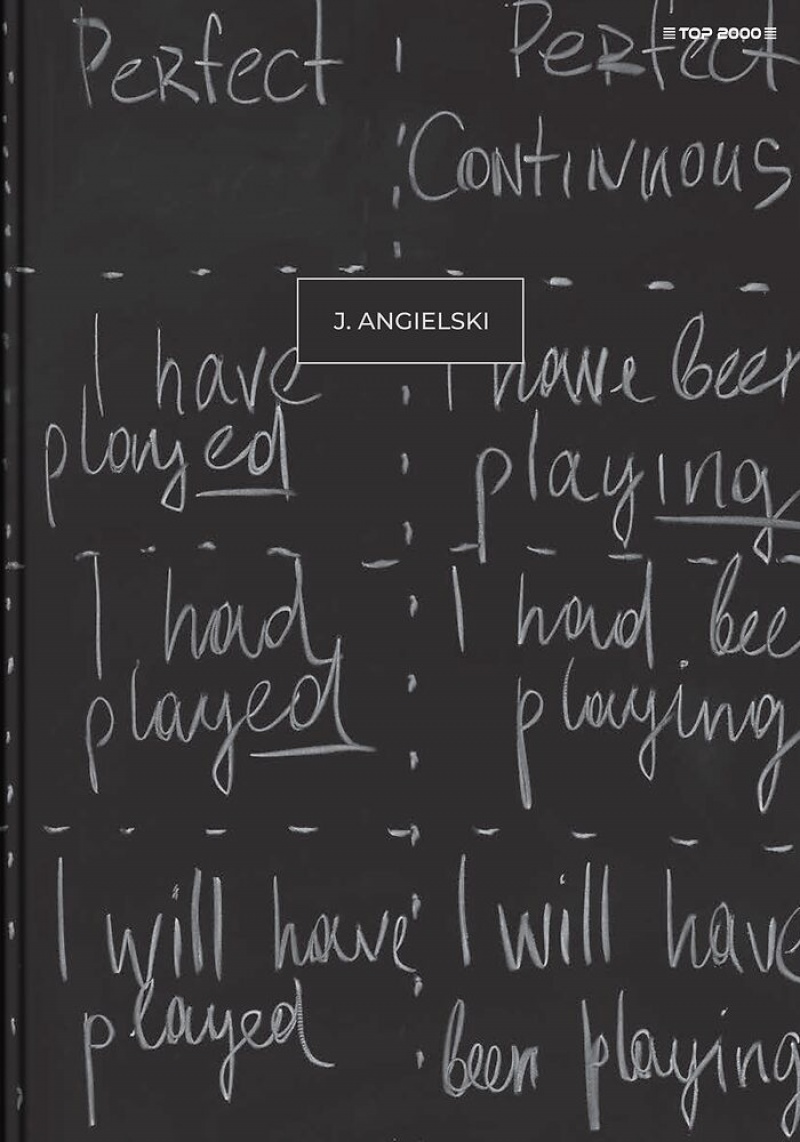 TOP 2000
Perfect
Perfect
Continuous
J. ANGIELSKI
I have
played
I have been
playing
I had
played
I had bee
playing
I will have
played
I will have
been playing